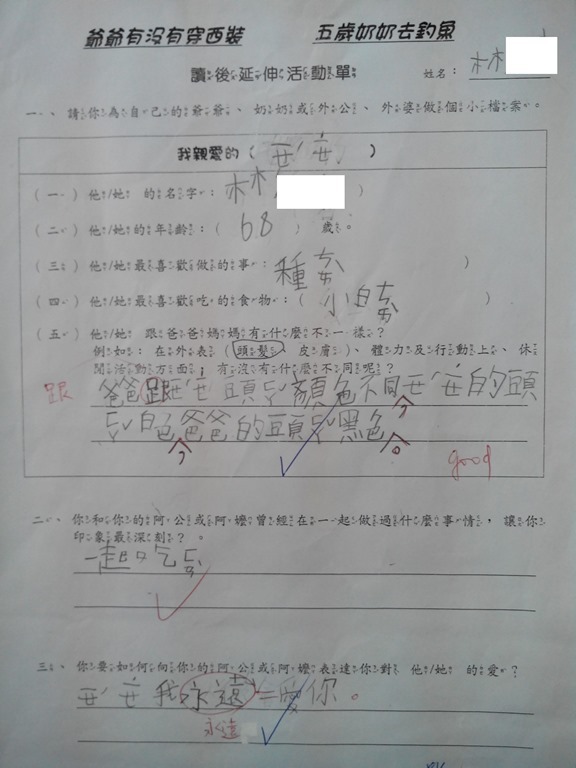 爺爺有沒有穿西裝 五歲奶奶去釣魚
讀後延伸活動單 姓名：林
一、請你為自己的爺爺、奶奶或外公、外婆做個小檔案。
我親愛的（ ）
（一）他/她 的名字：林 ）
（二）他/她的年齡：（ 68 ）歲。
（三）他/她最喜歡做的事：種 ）
（四）他/她最喜歡吃的食物：（小白 ）
（五）他/她 跟爸爸媽媽有什麼不一樣？
例如：在外表（頭髮、皮膚）、體力及行動上、休
閒活動方面；有沒有什麼不同呢？
跟 爸爸跟 頭ㄈㄚˇ顏色不同 的頭
ㄈㄚˇ白色，爸爸的頭ㄈㄚˇ黑色。
good
二、你和你的阿公或阿嬤曾經在一起做過什麼事情，讓你
印象最深刻？。
一起吃
三、你要如何向你的阿公或阿嬤表達你對 他/她 的愛？
我永遠 愛你。
永遠